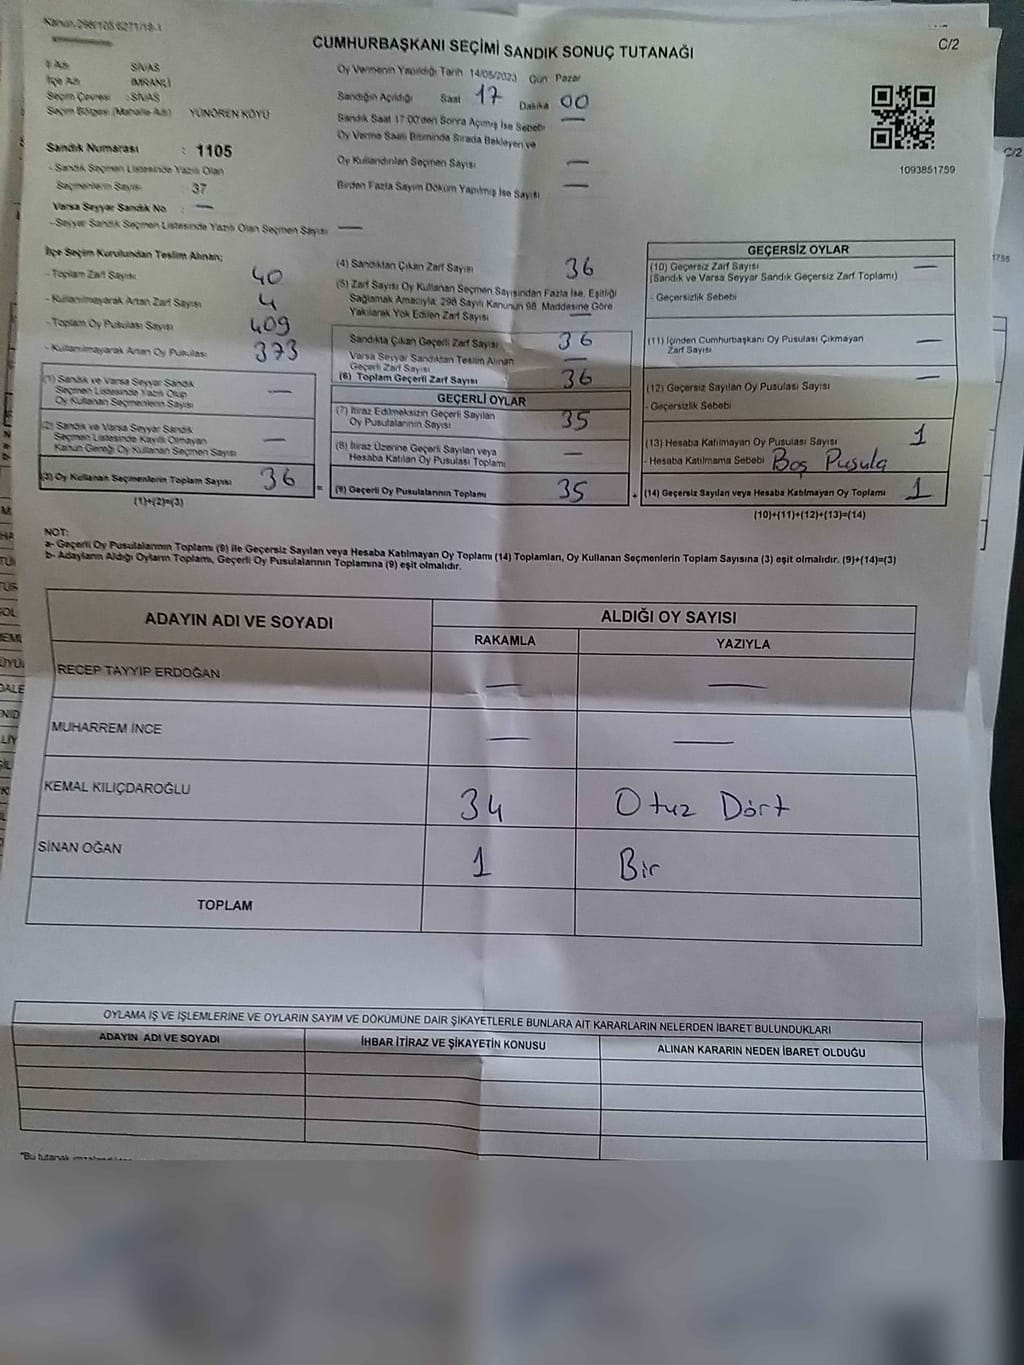 Kanun 298/105 6271/18-1
C/2
CUMHURBAŞKANI SEÇİMİ SANDIK SONUÇ TUTANAĞI
İl Adı SİVAS
İlçe Adı İMRANLI
Seçim Çevresi : SİVAS
Seçim Bölgesi (Mahalle Adı) YÜNÖREN KÖYÜ
Oy Vermenin Yapıldığı Tarih 14/05/2023 Gün Pazar
Sandığın Açıldığı Saat 17 Dakika 00
Sandık Saat 17:00'den Sonra Açılmış İse Sebebi —
Oy Verme Saati Bitiminde Sırada Bekleyen ve
Oy Kullandırılan Seçmen Sayısı —
Birden Fazla Sayım Döküm Yapılmış İse Sayısı —
1093851759
Sandık Numarası : 1105
- Sandık Seçmen Listesinde Yazılı Olan
Seçmenlerin Sayısı : 37
Varsa Seyyar Sandık No : —
- Seyyar Sandık Seçmen Listesinde Yazılı Olan Seçmen Sayısı —
İlçe Seçim Kurulundan Teslim Alınan;
- Toplam Zarf Sayısı 40
- Kullanılmayarak Artan Zarf Sayısı 4
- Toplam Oy Pusulası Sayısı 409
- Kullanılmayarak Artan Oy Pusulası 373
(1) Sandık ve Varsa Seyyar Sandık
Seçmen Listesinde Yazılı Olup
Oy Kullanan Seçmenlerin Sayısı —
(2) Sandık ve Varsa Seyyar Sandık
Seçmen Listesinde Kayıtlı Olmayan
Kanun Gereği Oy Kullanan Seçmen Sayısı —
(3) Oy Kullanan Seçmenlerin Toplam Sayısı 36
(1)+(2)=(3)
(4) Sandıktan Çıkan Zarf Sayısı 36
(5) Zarf Sayısı Oy Kullanan Seçmen Sayısından Fazla İse, Eşitliği
Sağlamak Amacıyla, 298 Sayılı Kanunun 98. Maddesine Göre
Yakılarak Yok Edilen Zarf Sayısı —
Sandıkta Çıkan Geçerli Zarf Sayısı 36
Varsa Seyyar Sandıktan Teslim Alınan
Geçerli Zarf Sayısı —
(6) Toplam Geçerli Zarf Sayısı 36
GEÇERLİ OYLAR
(7) İtiraz Edilmeksizin Geçerli Sayılan
Oy Pusulalarının Sayısı 35
(8) İtiraz Üzerine Geçerli Sayılan veya
Hesaba Katılan Oy Pusulası Toplamı —
= (9) Geçerli Oy Pusulalarının Toplamı 35
GEÇERSİZ OYLAR
(10) Geçersiz Zarf Sayısı —
(Sandık ve Varsa Seyyar Sandık Geçersiz Zarf Toplamı)
- Geçersizlik Sebebi
(11) İçinden Cumhurbaşkanı Oy Pusulası Çıkmayan
Zarf Sayısı —
(12) Geçersiz Sayılan Oy Pusulası Sayısı —
- Geçersizlik Sebebi
(13) Hesaba Katılmayan Oy Pusulası Sayısı 1
- Hesaba Katılmama Sebebi Boş Pusula
+ (14) Geçersiz Sayılan veya Hesaba Katılmayan Oy Toplamı 1
(10)+(11)+(12)+(13)=(14)
NOT:
a- Geçerli Oy Pusulalarının Toplamı (9) ile Geçersiz Sayılan veya Hesaba Katılmayan Oy Toplamı (14) Toplamları, Oy Kullanan Seçmenlerin Toplam Sayısına (3) eşit olmalıdır. (9)+(14)=(3)
b- Adayların Aldığı Oyların Toplamı, Geçerli Oy Pusulalarının Toplamına (9) eşit olmalıdır.
ADAYIN ADI VE SOYADI ALDIĞI OY SAYISI
RAKAMLA YAZIYLA
RECEP TAYYİP ERDOĞAN — —
MUHARREM İNCE — —
KEMAL KILIÇDAROĞLU 34 Otuz Dört
SİNAN OĞAN 1 Bir
TOPLAM
OYLAMA İŞ VE İŞLEMLERİNE VE OYLARIN SAYIM VE DÖKÜMÜNE DAİR ŞİKAYETLERLE BUNLARA AİT KARARLARIN NELERDEN İBARET BULUNDUKLARI
ADAYIN ADI VE SOYADI İHBAR İTİRAZ VE ŞİKAYETİN KONUSU ALINAN KARARIN NEDEN İBARET OLDUĞU
*Bu tutanak
C/2